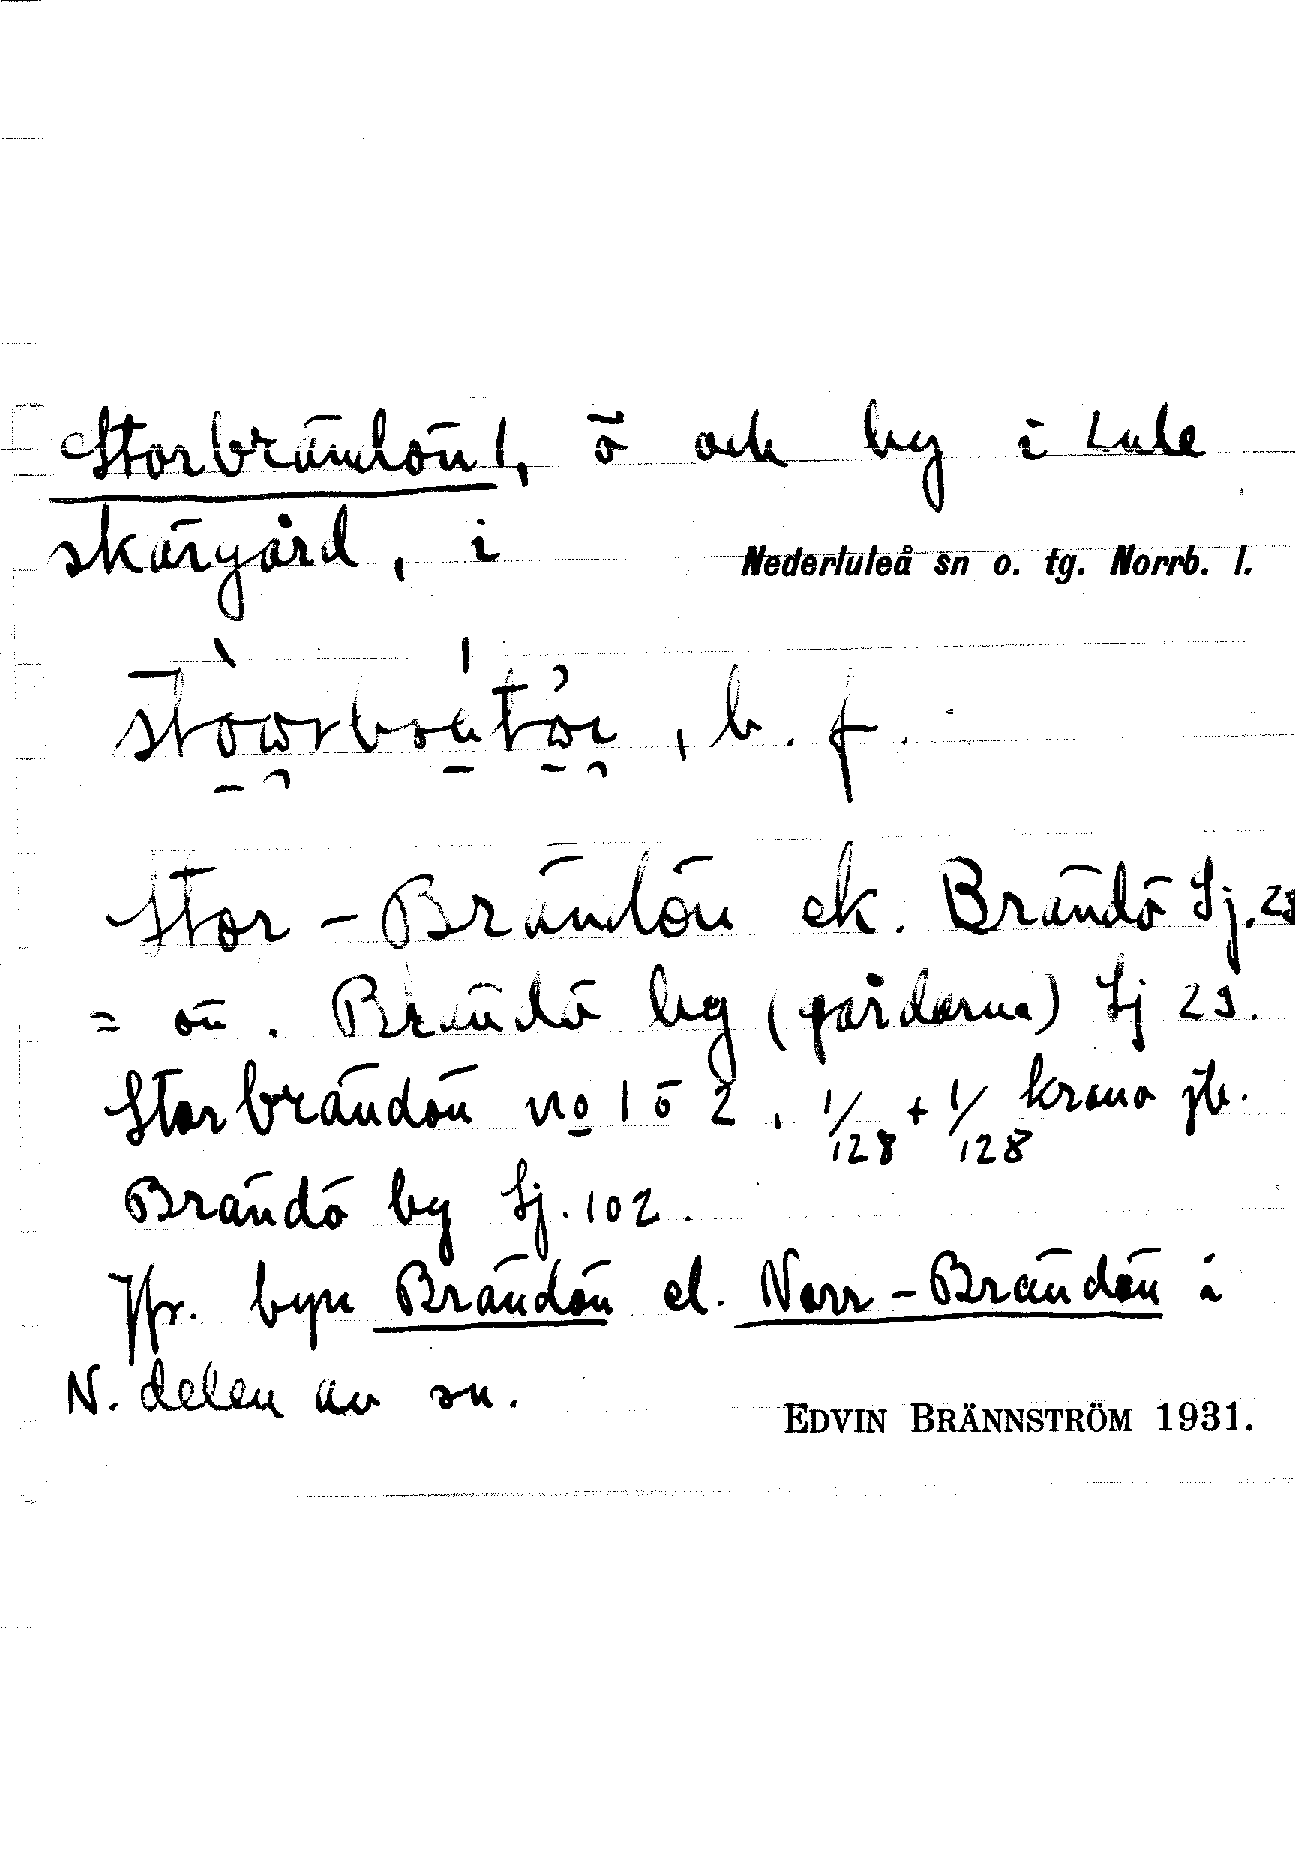 Storbrändön 1, ö och by i Lule
skärgård, i Nederluleå sn o. tg. Norrb. l.
b. f.
Stor-Brändön ek. Brändö Sj. 23
= ön. Brändö by (gårdarna) Sj 23.
Storbrändön no 1 o 2, 1/128 + 1/128 krono jb.
Brändö by Sj. 102.
Jfr. byn Brändön el. Norr-Brändön i
N. delen av sn.
EDVIN BRÄNNSTRÖM 1931.